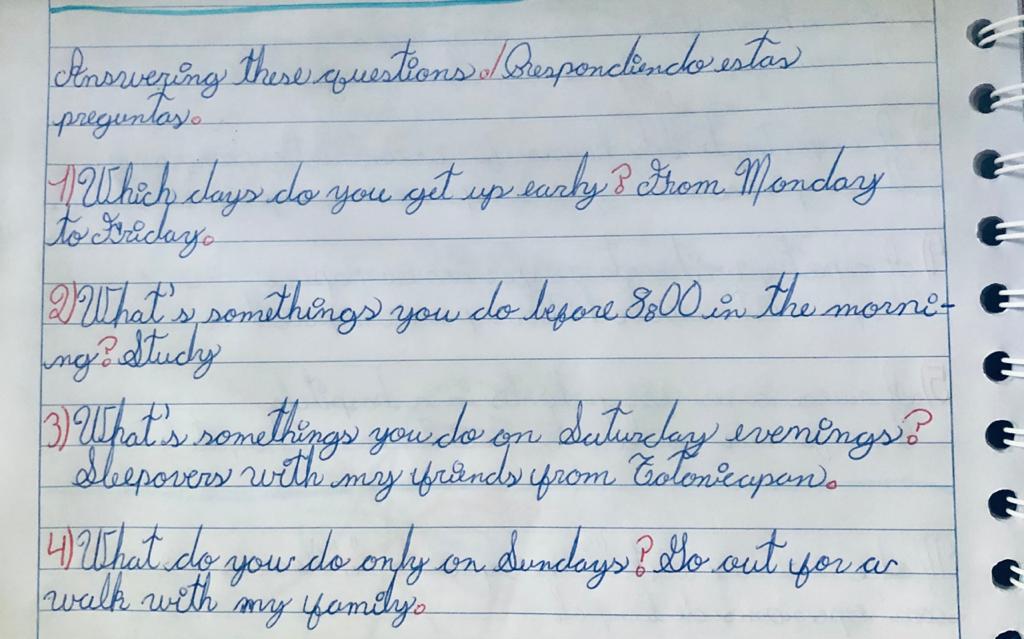 Answering these questions./Respondiendo estas
preguntas.
1) Which days do you get up early? From Monday
to Friday.
2) What's somethings you do before 8:00 in the morni-
ng? Study
3) What's somethings you do on Saturday evenings?
Sleepovers with my friends from Totonicapan.
4) What do you do only on Sundays? Go out for a
walk with my family.